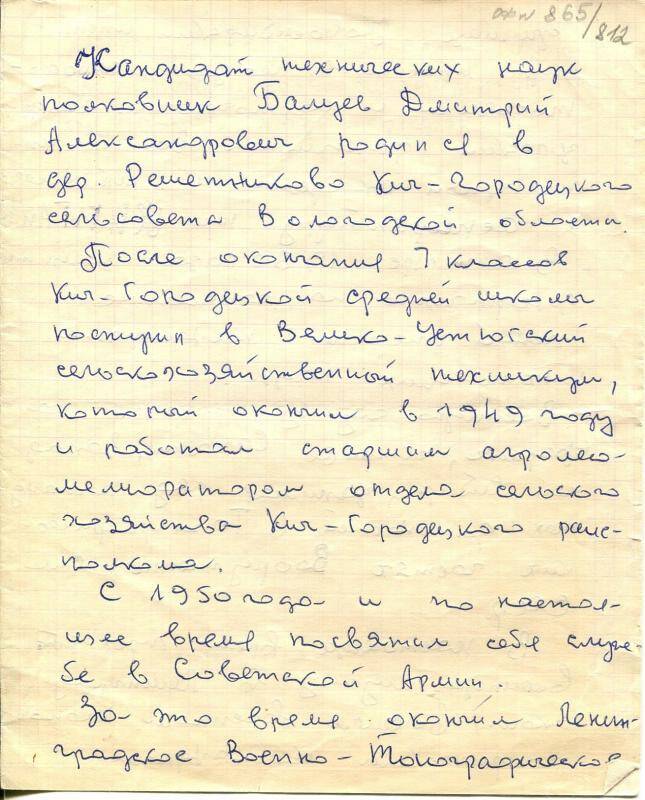 офн 865/812
Кандидат технических наук
полковник Балуев Дмитрий
Александрович родился в
дер. Решетниково Кич-Городецкого
сельсовета Вологодской области.
После окончания 7 классов
Кич-Городецкой средней школы
поступил в Велико-Устюгский
сельскохозяйственный техникум,
который окончил в 1949 году
и работал старшим агролесо-
мелиоратором отдела сельского
хозяйства Кич-Городецкого раис-
полкома.
С 1950 года и по настоя-
щее время посвятил себя служ-
бе в Советской Армии.
За это время окончил Ленин-
градское Военно-Топографическое